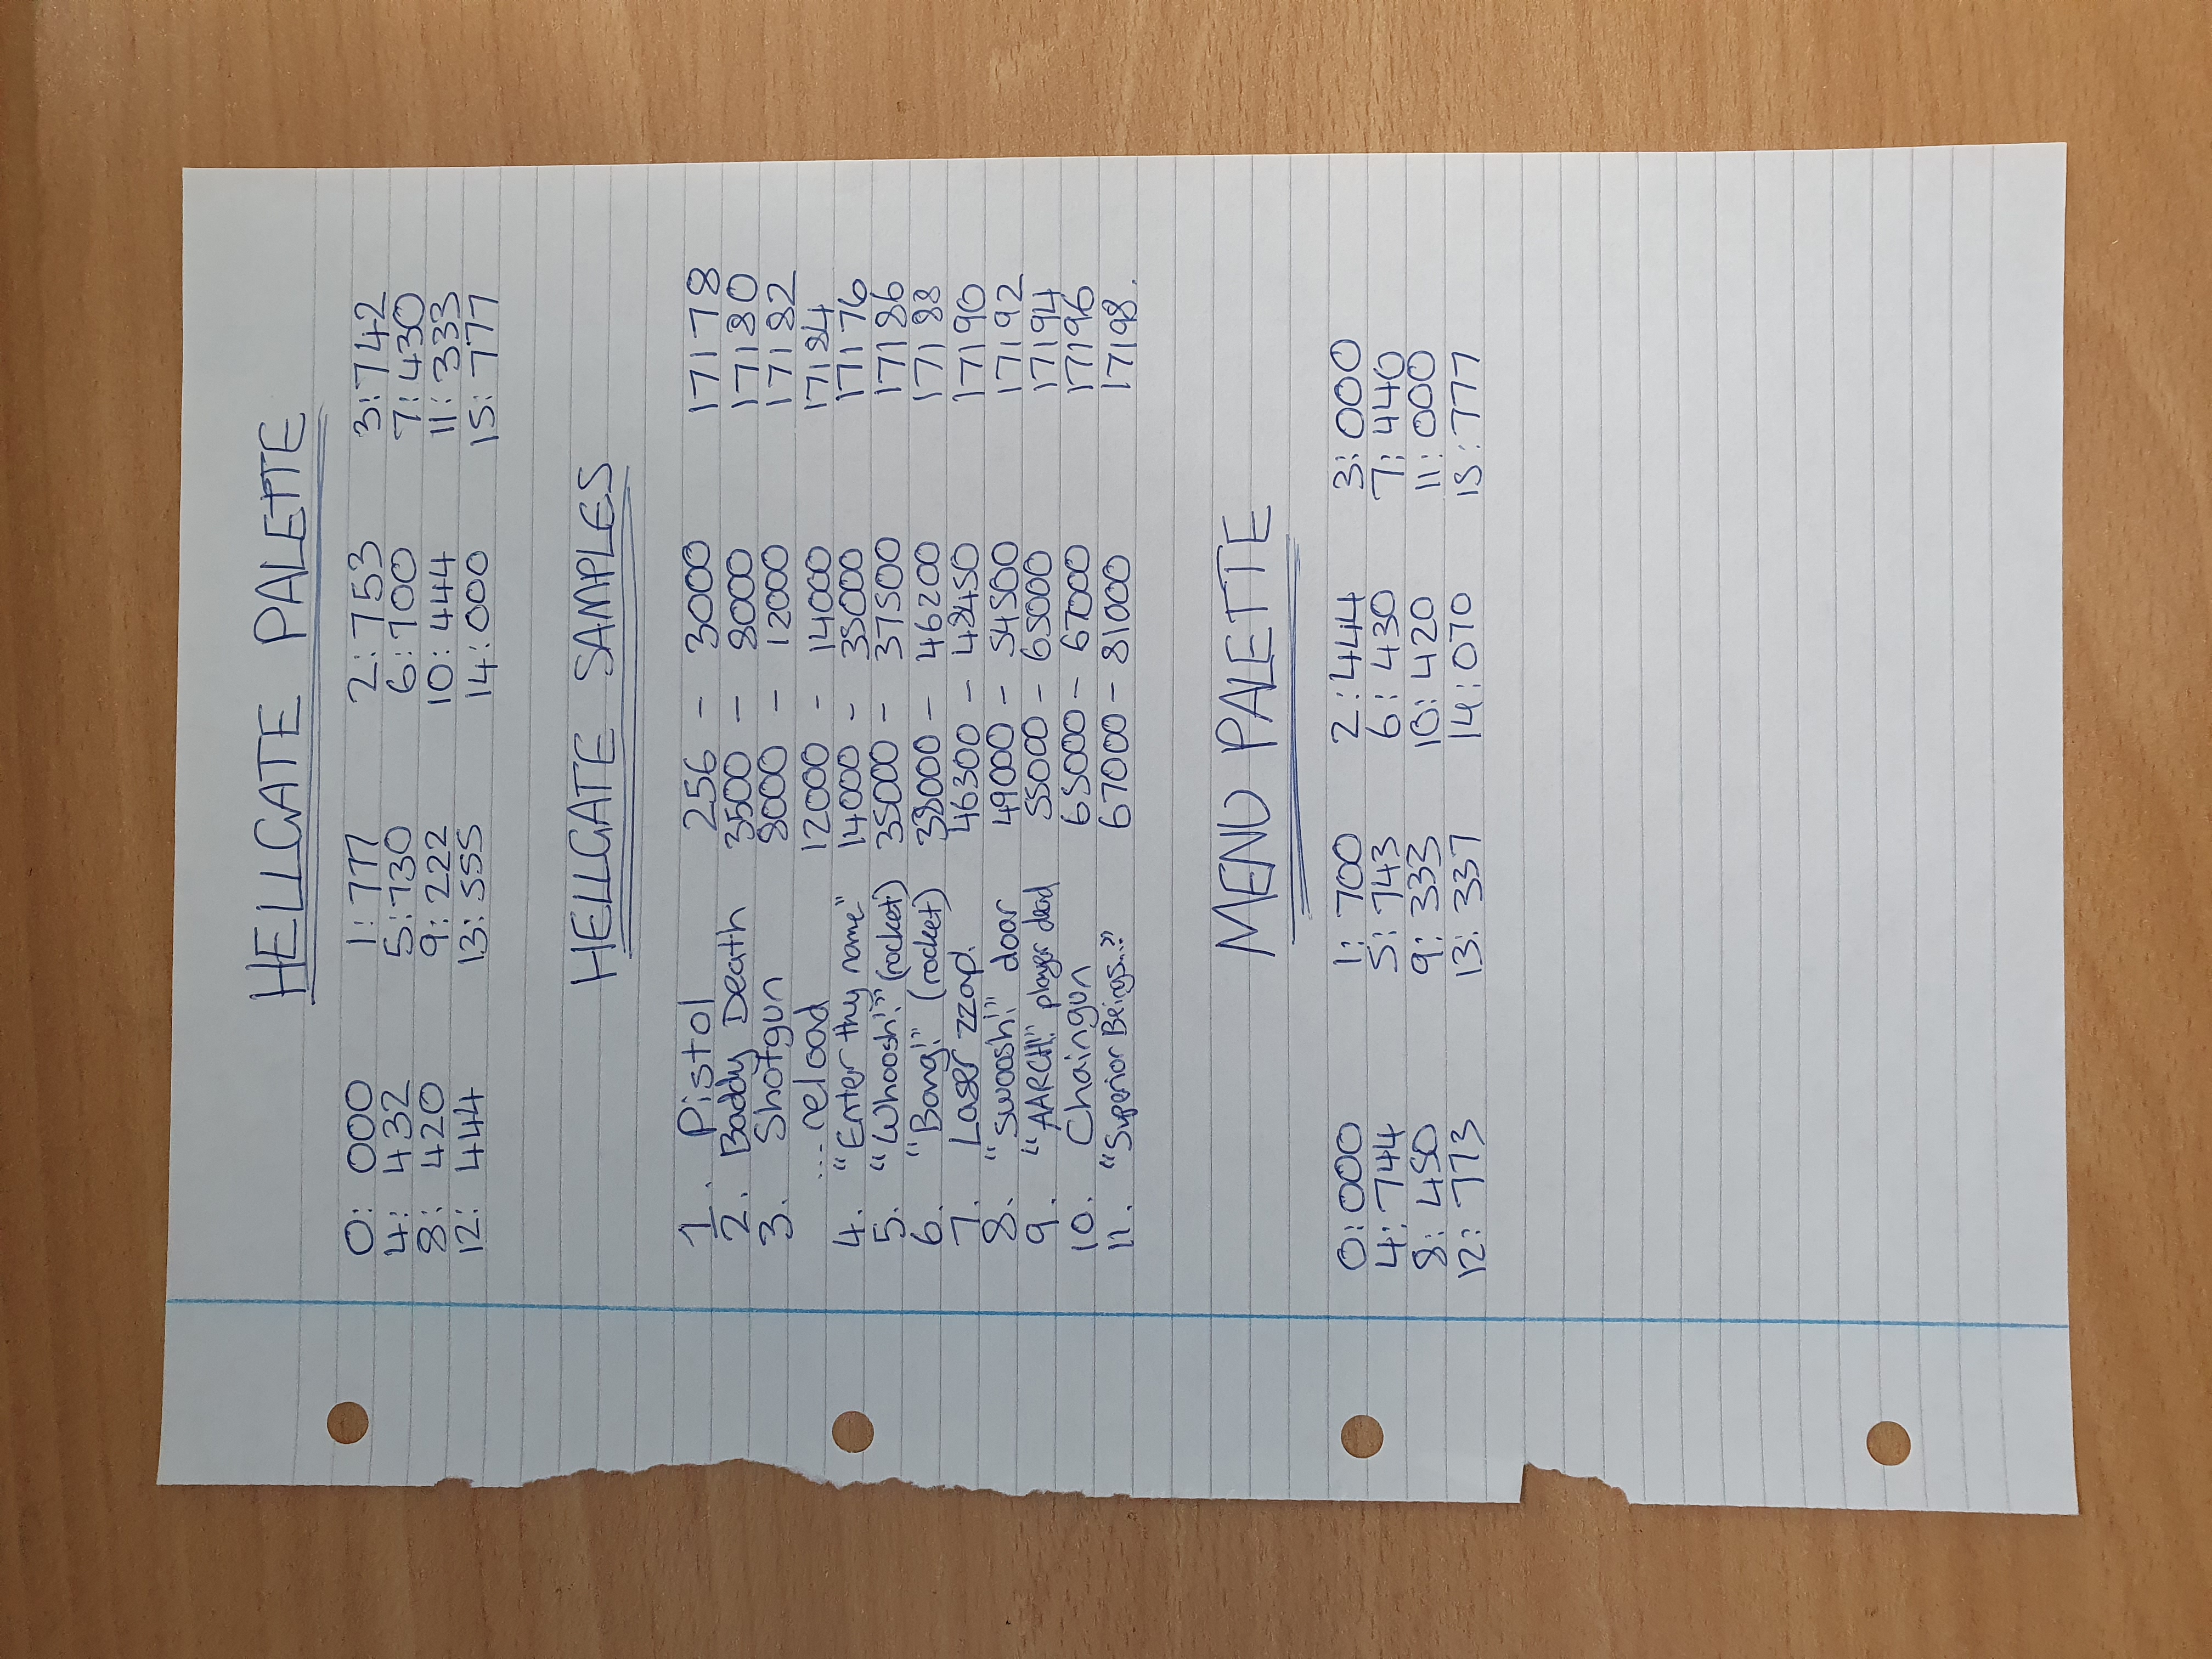 HELLGATE PALETTE
0: 000 1: 777 2: 753 3: 742
4: 432 5: 730 6: 700 7: 430
8: 420 9: 222 10: 444 11: 333
12: 444 13: 555 14: 000 15: 777
HELLGATE SAMPLES
1. Pistol 256 - 3000 17178
2. Baddy Death 3500 - 8000 17180
3. Shotgun 8000 - 12000 17182
...reload 12000 - 14000 17184
4. "Enter thy name" 14000 - 35000 17176
5. "Whoosh!" (rocket) 35000 - 37500 17186
6. "Bang!" (rocket) 38000 - 46200 17188
7. Laser zzap. 46300 - 48450 17190
8. "swoosh!" door 49000 - 54500 17192
9. "AARGH!" player dead 55000 - 65000 17194
10. Chaingun 65000 - 67000 17196
11. "Superior Beings..." 67000 - 81000 17198.
MENU PALETTE
0: 000 1: 700 2: 444 3: 000
4: 744 5: 743 6: 430 7: 440
8: 450 9: 333 10: 420 11: 000
12: 773 13: 337 14: 070 15: 777